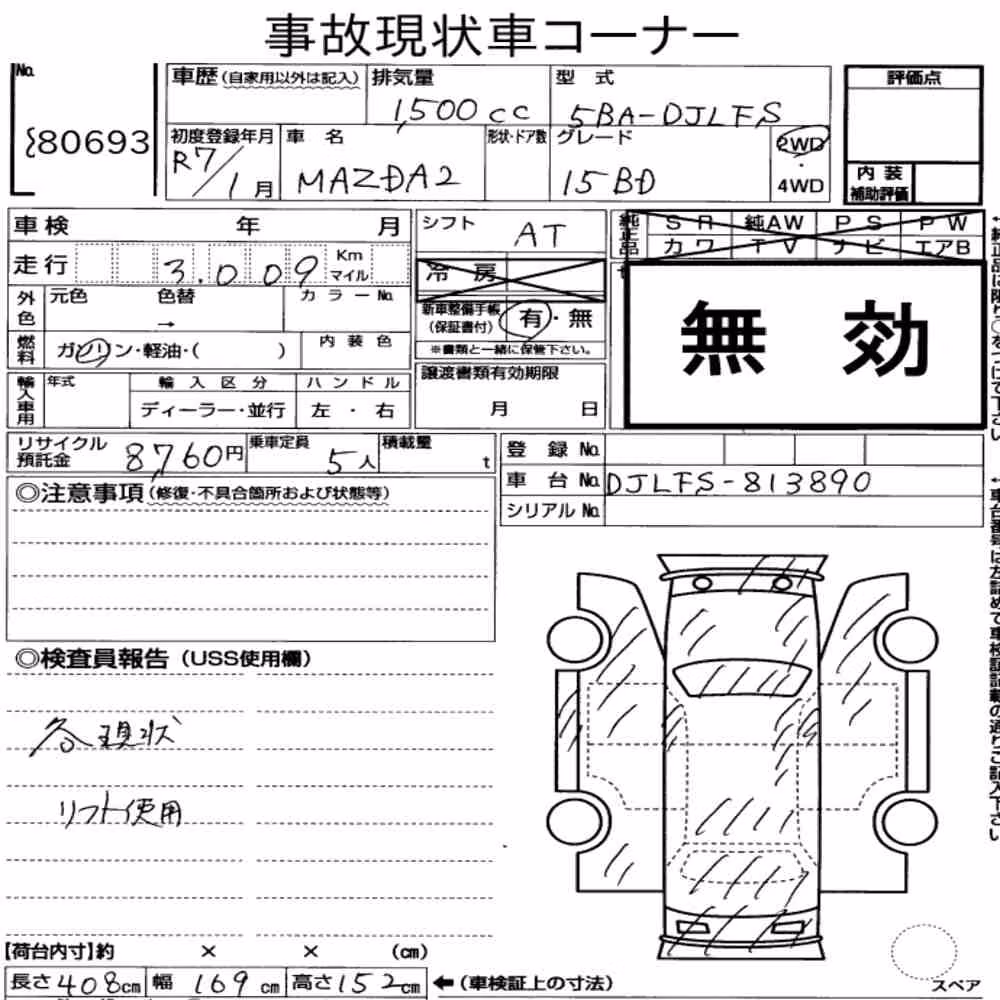 事故現状車コーナー
No.
80693
車歴 (自家用以外は記入)
排気量
1,500cc
型式
5BA-DJLFS
評価点
初度登録年月
R7/1月
車名
MAZDA2
形状・ドア数
グレード
15BD
2WD
・
4WD
内装
補助評価
車検 年 月
シフト
AT
純正品
SR 純AW PS PW
カワ TV ナビ エアB
走行
3.009
Km
マイル
冷房
外色
元色 色替 カラーNo.
→
新車整備手帳
(保証書付)
有・無
※書類と一緒に保管下さい。
無効
燃料
ガソリン・軽油・( )
内装色
輸入車用
年式
輸入区分
ハンドル
ディーラー・並行
左・右
譲渡書類有効期限
月 日
リサイクル
預託金
8,760円
乗車定員
5人
積載量
t
登録No.
車台No.
DJLFS-813890
シリアルNo.
◎注意事項(修復・不具合箇所および状態等)
◎検査員報告(USS使用欄)
各現状
リフト使用
【荷台内寸】約 × × (cm)
長さ408cm 幅169cm 高さ152cm
←(車検証上の寸法)
スペア